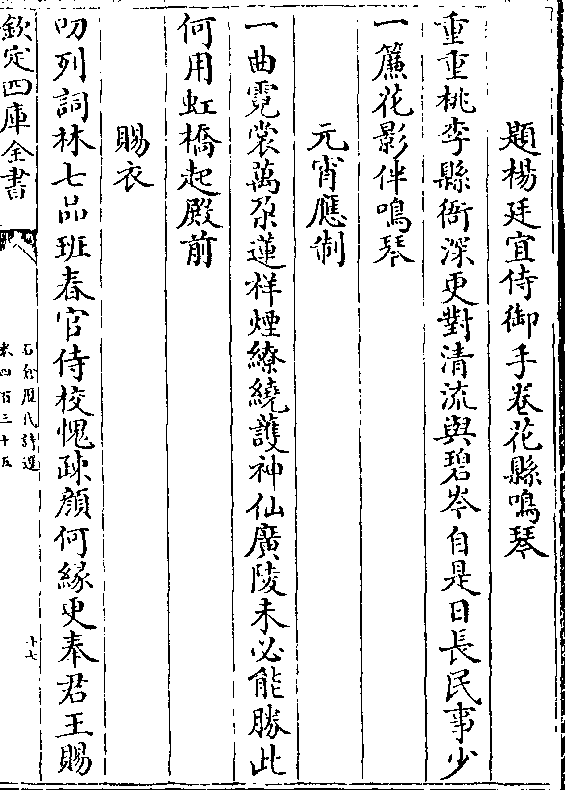 題楊廷宜侍御手卷花縣鳴琴
重重桃李縣衙深更對清流與碧岑自是日長民事少
一簾花影伴鳴琴
元宵應制
一曲霓裳萬朶蓮祥煙繚繞護神仙廣陵未必能勝此
何用虹橋起殿前
賜衣
叨列詞林七品班春官侍校愧疎顔何緣更奉君王賜
欽定四庫全書
石倉歷代詩選
卷四百三十五
十七